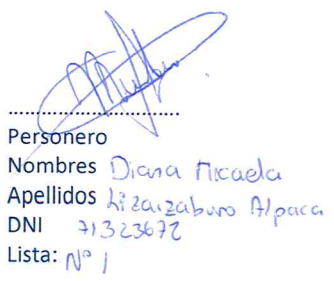 Personero
Nombres Diana Micaela
Apellidos Lizarzaburo Alpaca
DNI 71323672
Lista: N° 1